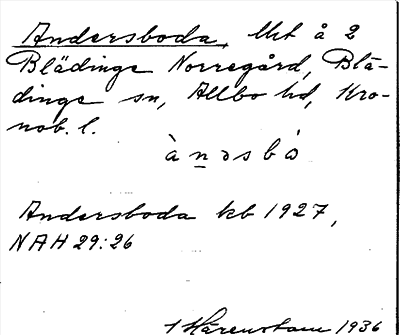 Andersboda, Utt å 2
Blädinge Norregård, Blä-
dinge sn, Allbo hd, Kro-
nob. l.
àṉəsbó
Andersboda kb 1927,
NAH 29:26
Härenstam 1936